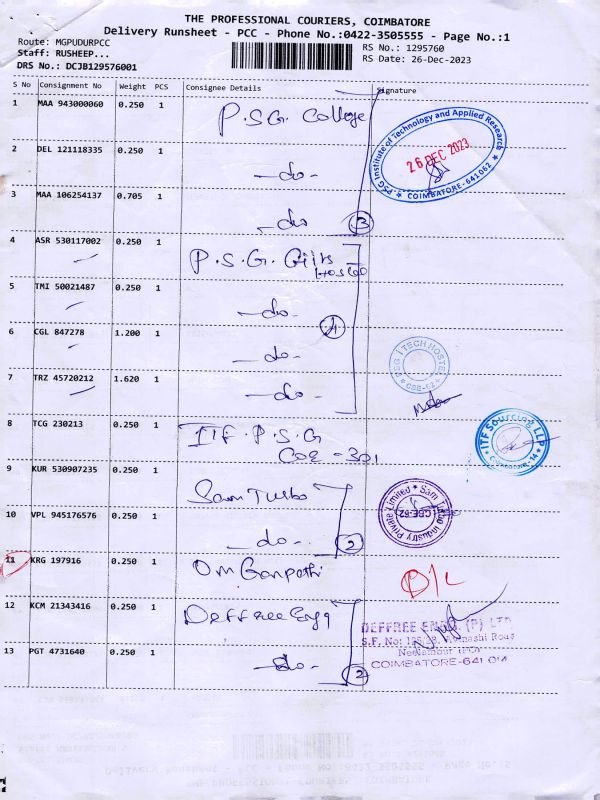 THE PROFESSIONAL COURIERS, COIMBATORE
Delivery Runsheet - PCC - Phone No.:0422-3505555 - Page No.:1
Route: MGPUDURPCC
RS No.: 1295760
Staff: RUSHEEP...
RS Date: 26-Dec-2023
DRS No.: DCJB129576001
S No Consignment No Weight PCS Consignee Details Signature
1 MAA 943000060 0.250 1 P.S.G. College
PSG Institute of Technology and Applied Research
26 DEC 2023
COIMBATORE-641 062
2 DEL 121118335 0.250 1 -do-
3 MAA 106254137 0.705 1 -do- 3
4 ASR 530117002 0.250 1 P.S.G. Girls
Hostel
5 TMI 50021487 0.250 1 -do-
6 CGL 847278 1.200 1 -do- 4
PSG ITECH HOSTEL
CBE-62
7 TRZ 45720212 1.620 1 -do-
8 TCG 230213 0.250 1 ITF.P.S.G
COE-301
ITF Sourcing LLP
9 KUR 530907235 0.250 1 Sam Turbo
Sam Turbo Industry Private Limited
CBE-62
10 VPL 945176576 0.250 1 -do- 2
11 KRG 197916 0.250 1 Om Ganpathi D/L
12 KCM 21343416 0.250 1 Deffree Eng
DEFFREE ENGG. (P) LTD
S.F. No:
Road
COIMBATORE-641 014
13 PGT 4731640 0.250 1 -do- 2